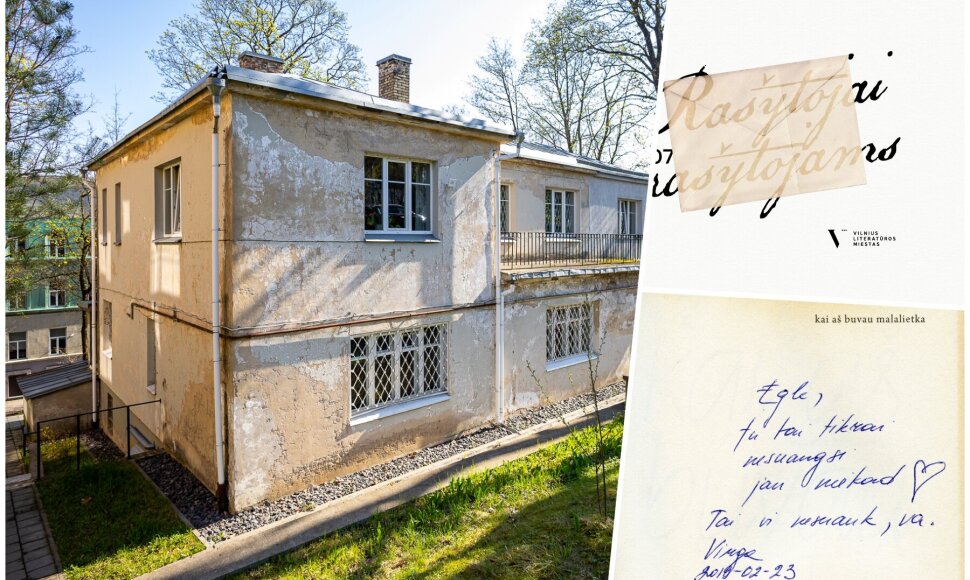 Rašytojai
07
rašytojams
VILNIUS
LITERATŪROS
MIESTAS
kai aš buvau malalietka
Egle,
tu tai tikrai
nesnangsi
jau niekad
Tai vi nesnauk, va.
Virga
2019-02-23